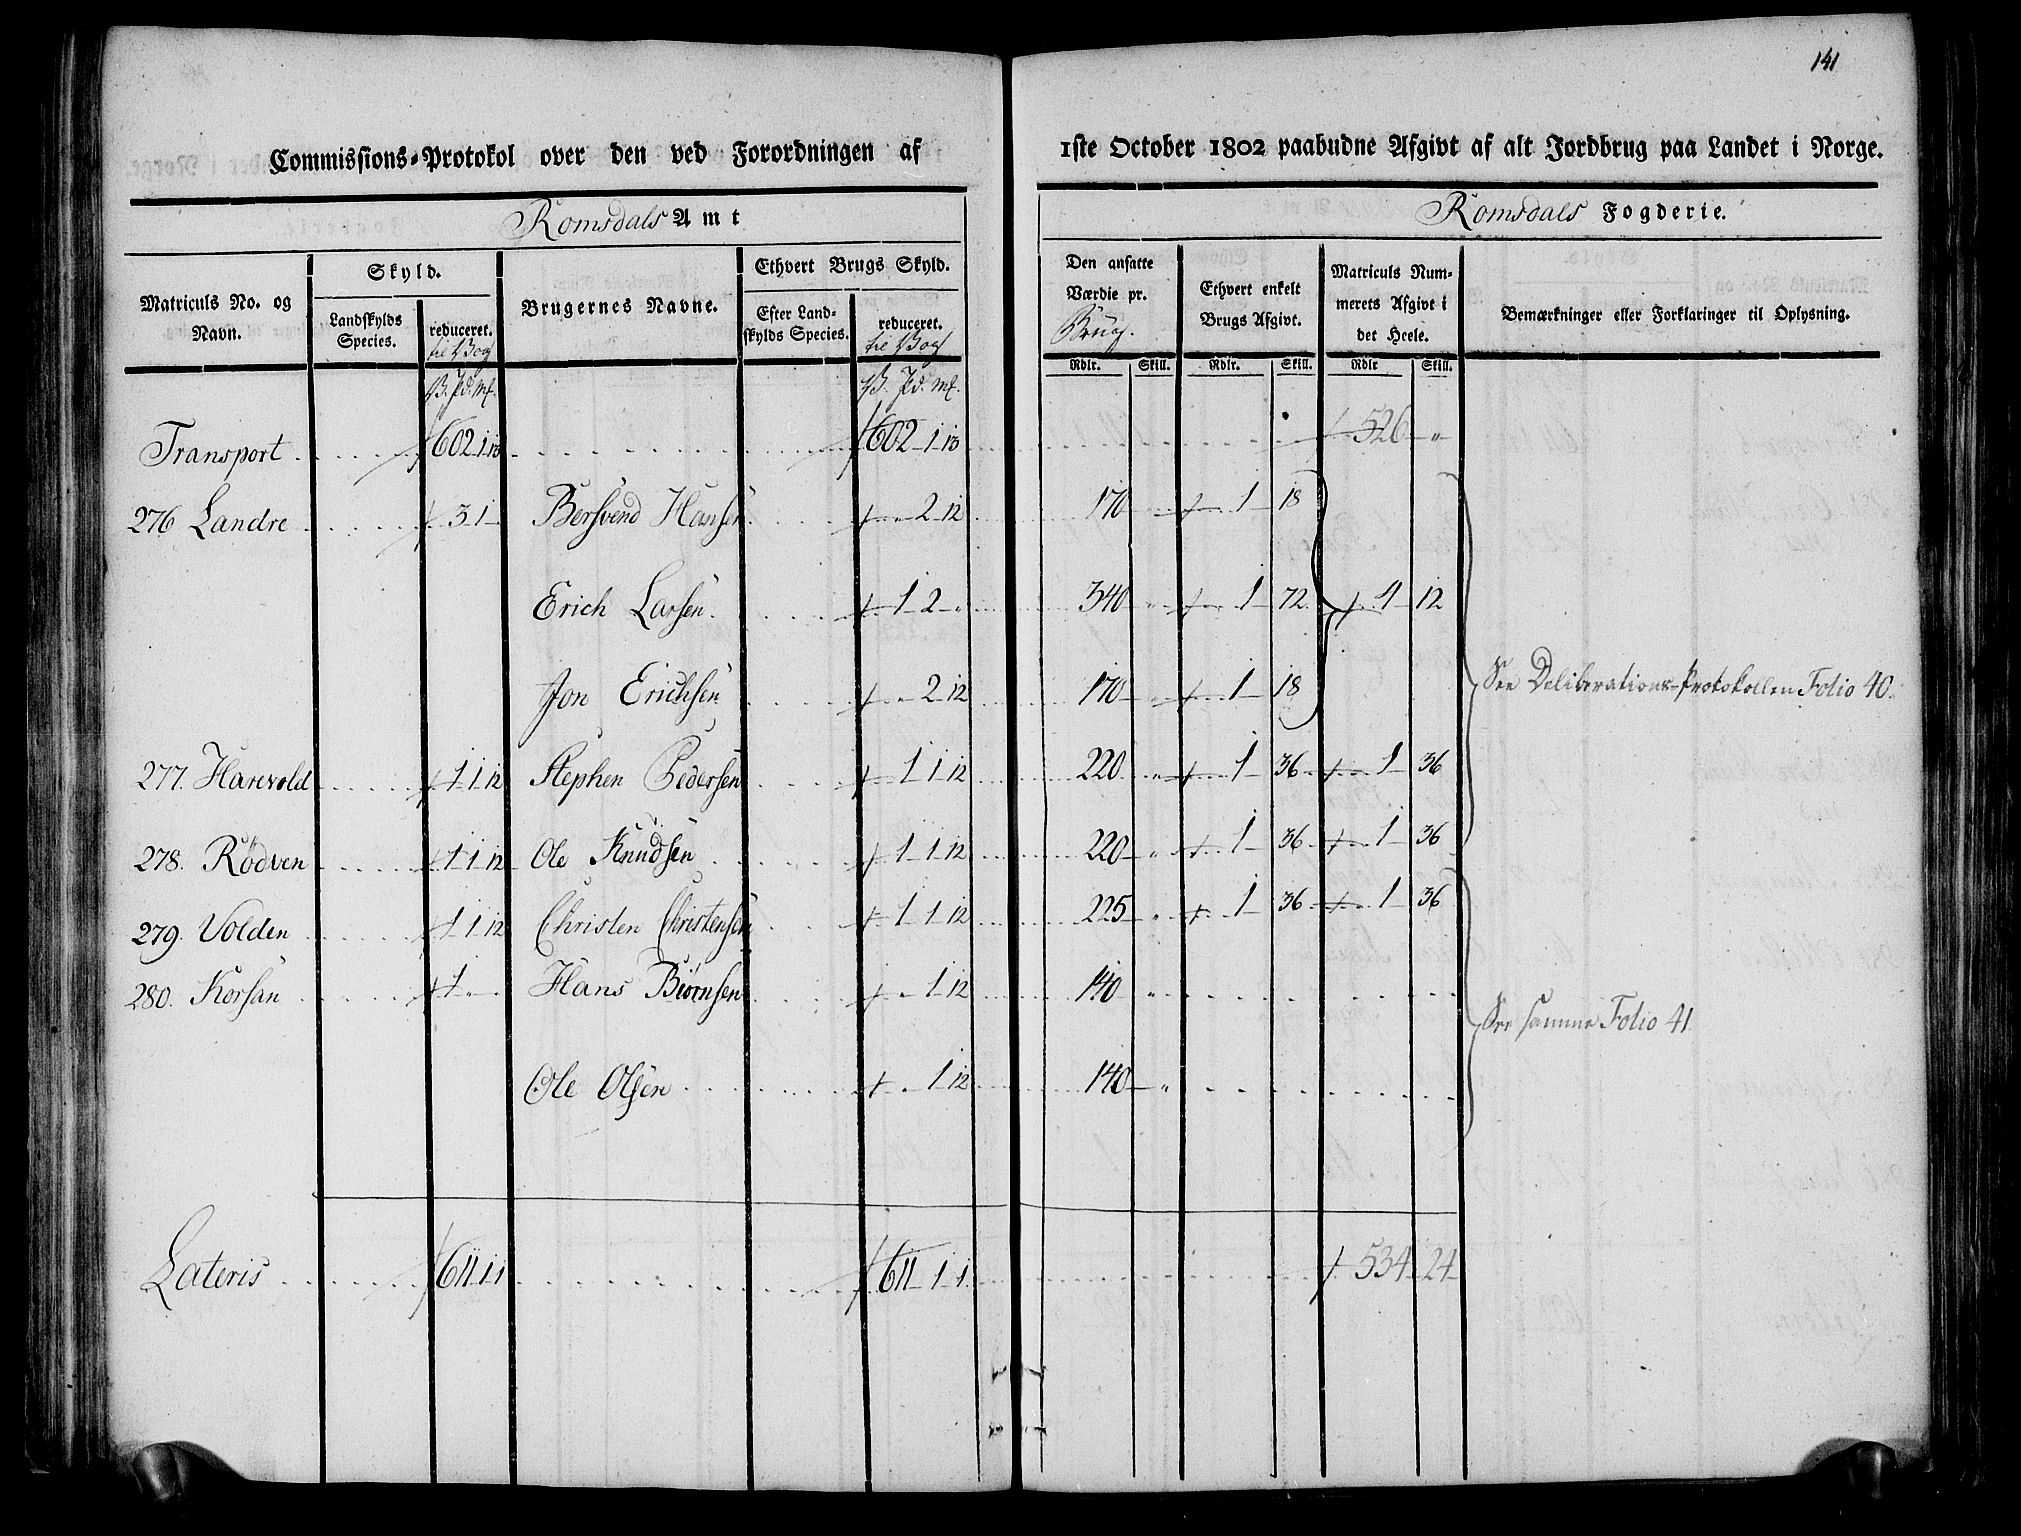 141
Commissions-Protokol over den ved Forordningen af 1ste October 1802 paabudne Afgivt af alt Jordbrug paa Landet i Norge.
Romsdals Amt
Romsdals Fogderie.
Matriculs No. og Navn.
Skyld.
Landskylds Species.
reduceret. til Vog
Brugernes Navne.
Ethvert Brugs Skyld.
Efter Landskylds Species.
reduceret. til Vog
Den ansatte Værdie pr. Brug.
Ethvert enkelt Brugs Afgivt.
Matriculs Nummerets Afgivt i det Heele.
Bemærkninger eller Forklaringer til Oplysning.
Rdlr. Skill. Rdlr. Skill. Rdlr Skill.
V. Pd. Mk. V. Pd. Mk.
Transport 602 1 13 602 1 13 526 "
276 Landre 3 1 Bersvend Hansen " 2 12 170 1 18
Erich Larsen 1 2 " 340 " 1 72 4 12
Jon Erichsen " 2 12 170 " 1 18
See Deliberations-Protokollen Folio 40.
277. Harevold 1 1 12 Stephen Pedersen 1 1 12 220 " 1 36 1 36
278. Rødven 1 1 12 Ole Knudsen 1 1 12 220 " 1 36 1 36
279. Volden 1 1 12 Christen Christensen 1 1 12 225 " 1 36 1 36
280. Korsan 1 " Hans Biørnsen " 1 12 140 "
See samme Folio 41
Ole Olsen " 1 12 140 "
Lateris 611 1 1 611 1 1 534 24